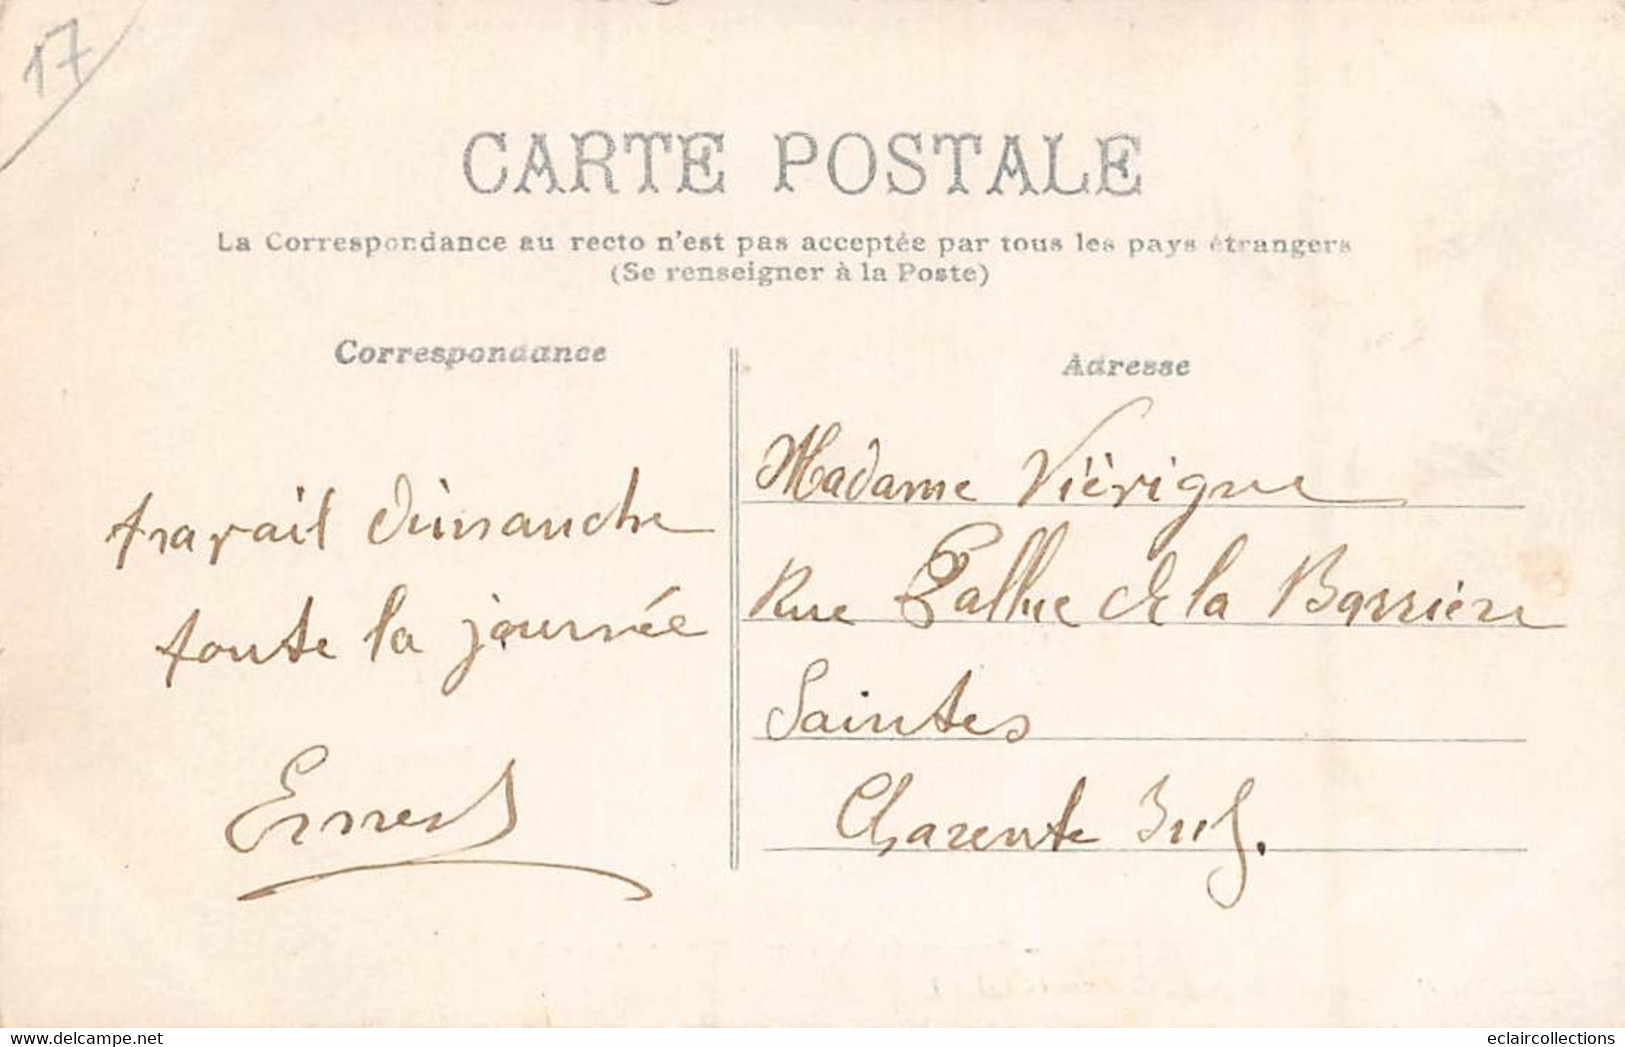 17
CARTE POSTALE
La Correspondance au recto n'est pas acceptée par tous les pays étrangers
(Se renseigner à la Poste)
Correspondance
Adresse
travail dimanche
toute la journée
Ernest
Madame Viérigue
Rue Pallue de la Barrière
Saintes
Charente Inf.
Delcampe.net
eclaircollections